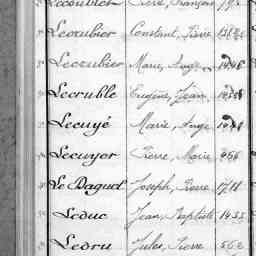 Lecoublet Pierre, François
Lecoubier Constant, Pierre
Lecoubier Marie, Ange
Lecruble Eugène, Jean
Lecuyé Marie, Ange
Lecuyer Pierre, Marie 956
Le Daguet Joseph, Pierre 1711
Leduc Jean, Baptiste 1433
Ledru Jules, Pierre 562